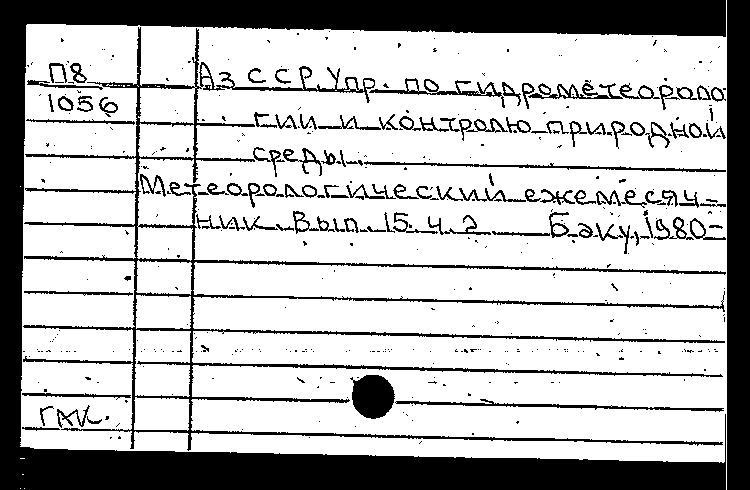 П8
1056
Аз ССР. Упр. по гидрометеороло
гии и контролю природной
среды.
Метеорологический ежемесяч-
ник. Вып. 15. ч. 2 Баку, 1980-
ГАК.